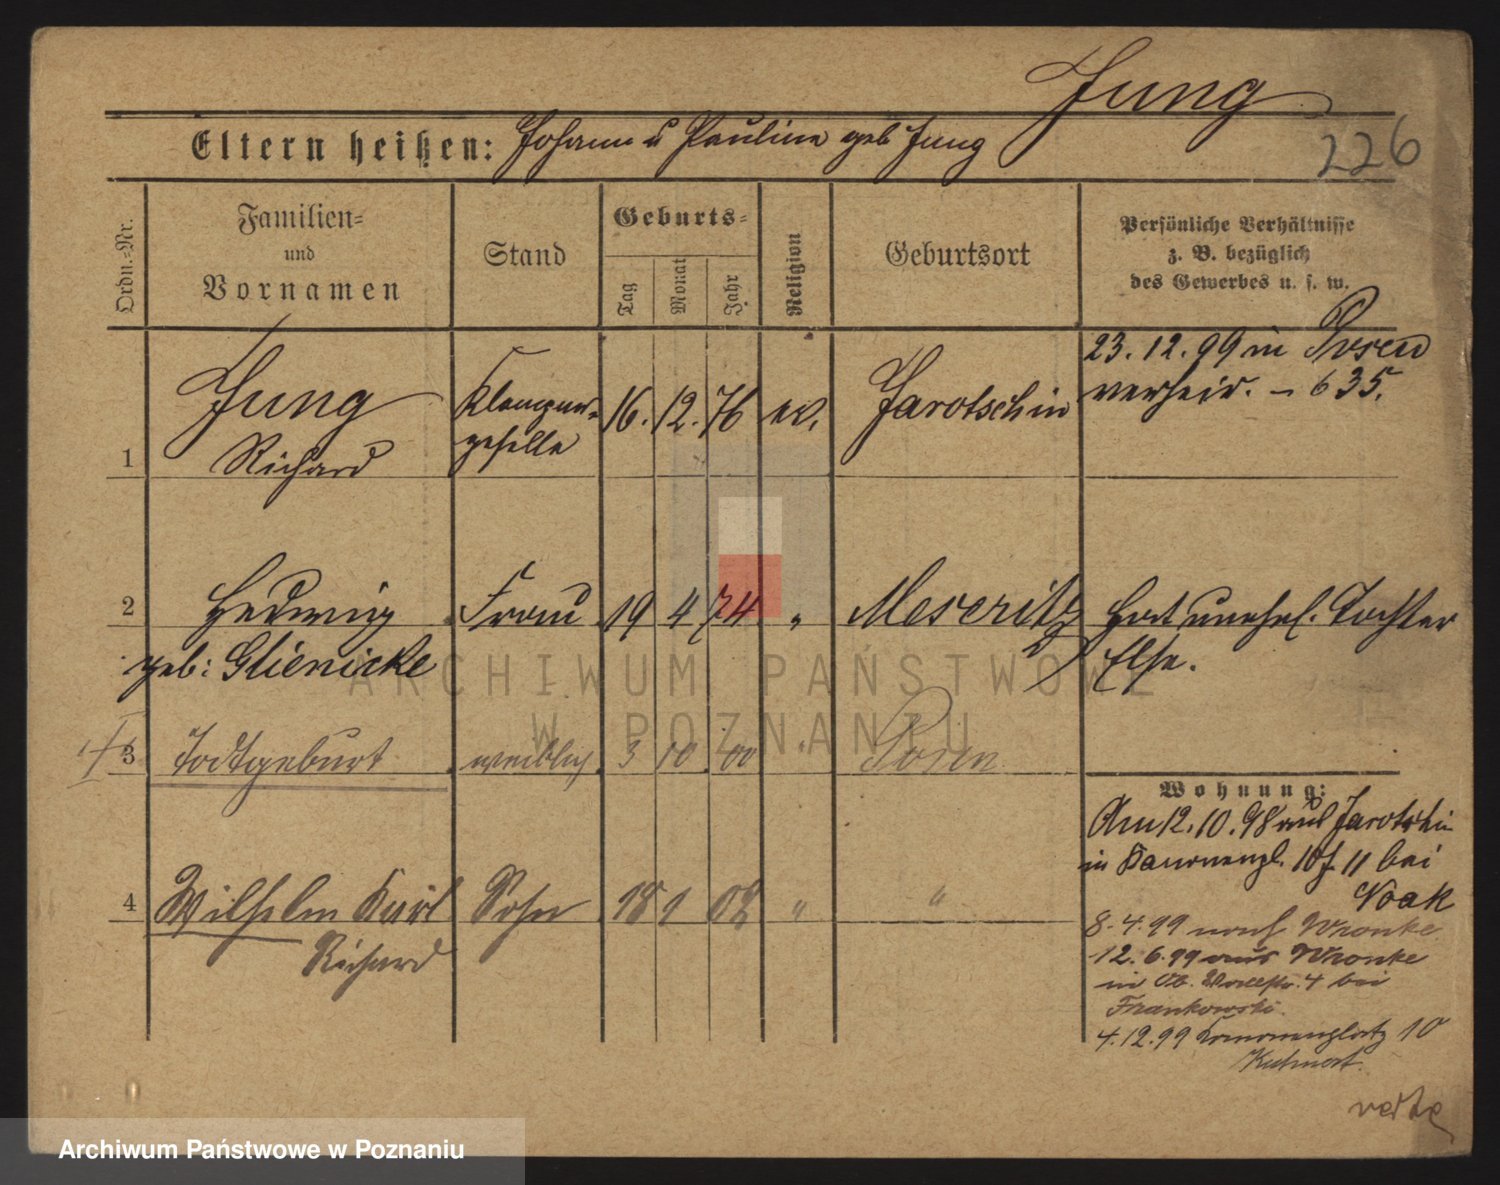 Jung
Eltern heißen: Johann u Pauline geb Jung
226
Ordn.-Nr.
Familien-
und
Vornamen
Stand
Geburts-
Tag
Monat
Jahr
Religion
Geburtsort
Persönliche Verhältnisse
z. B. bezüglich
des Gewerbes u. s. w.
1
Jung
Richard
Klempner-
geselle
16. 12. 76
ev.
Jarotschin
23. 12. 99 in Posen
verheir. – 635.
2
Hedwig
geb: Glienicke
Frau
19 4 74
"
Meseritz
Hat unehel. Tochter
Else.
3
Todtgeburt
weiblich
3 10 00
"
Posen
4
Wilhelm Karl
Richard
Sohn
18 1 02
"
"
Wohnung:
Am 12. 10. 98 aus Jarotschin
in 10 11 bei
Noak
8. 4. 99 nach Wronke
12. 6. 99 aus Wronke
in 4 bei
Frankowski.
4. 12. 99 10
verte
ARCHIWUM PAŃSTWOWE
W POZNANIU
Archiwum Państwowe w Poznaniu